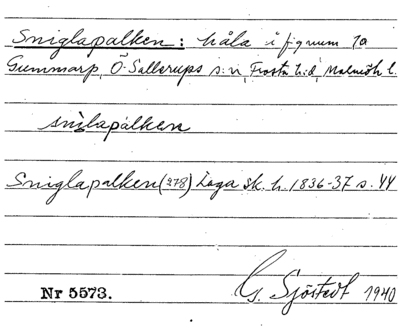 Sniglapalken: håla i fignum 1a
Gummarp, Ö. Sallerups s:n, Frosta h:d, Malmöh l.
snìlapalken
Sniglapalken (278) Laga sk. h. 1836-37 s. 44
Nr 5573.
G. Sjöstedt 1940